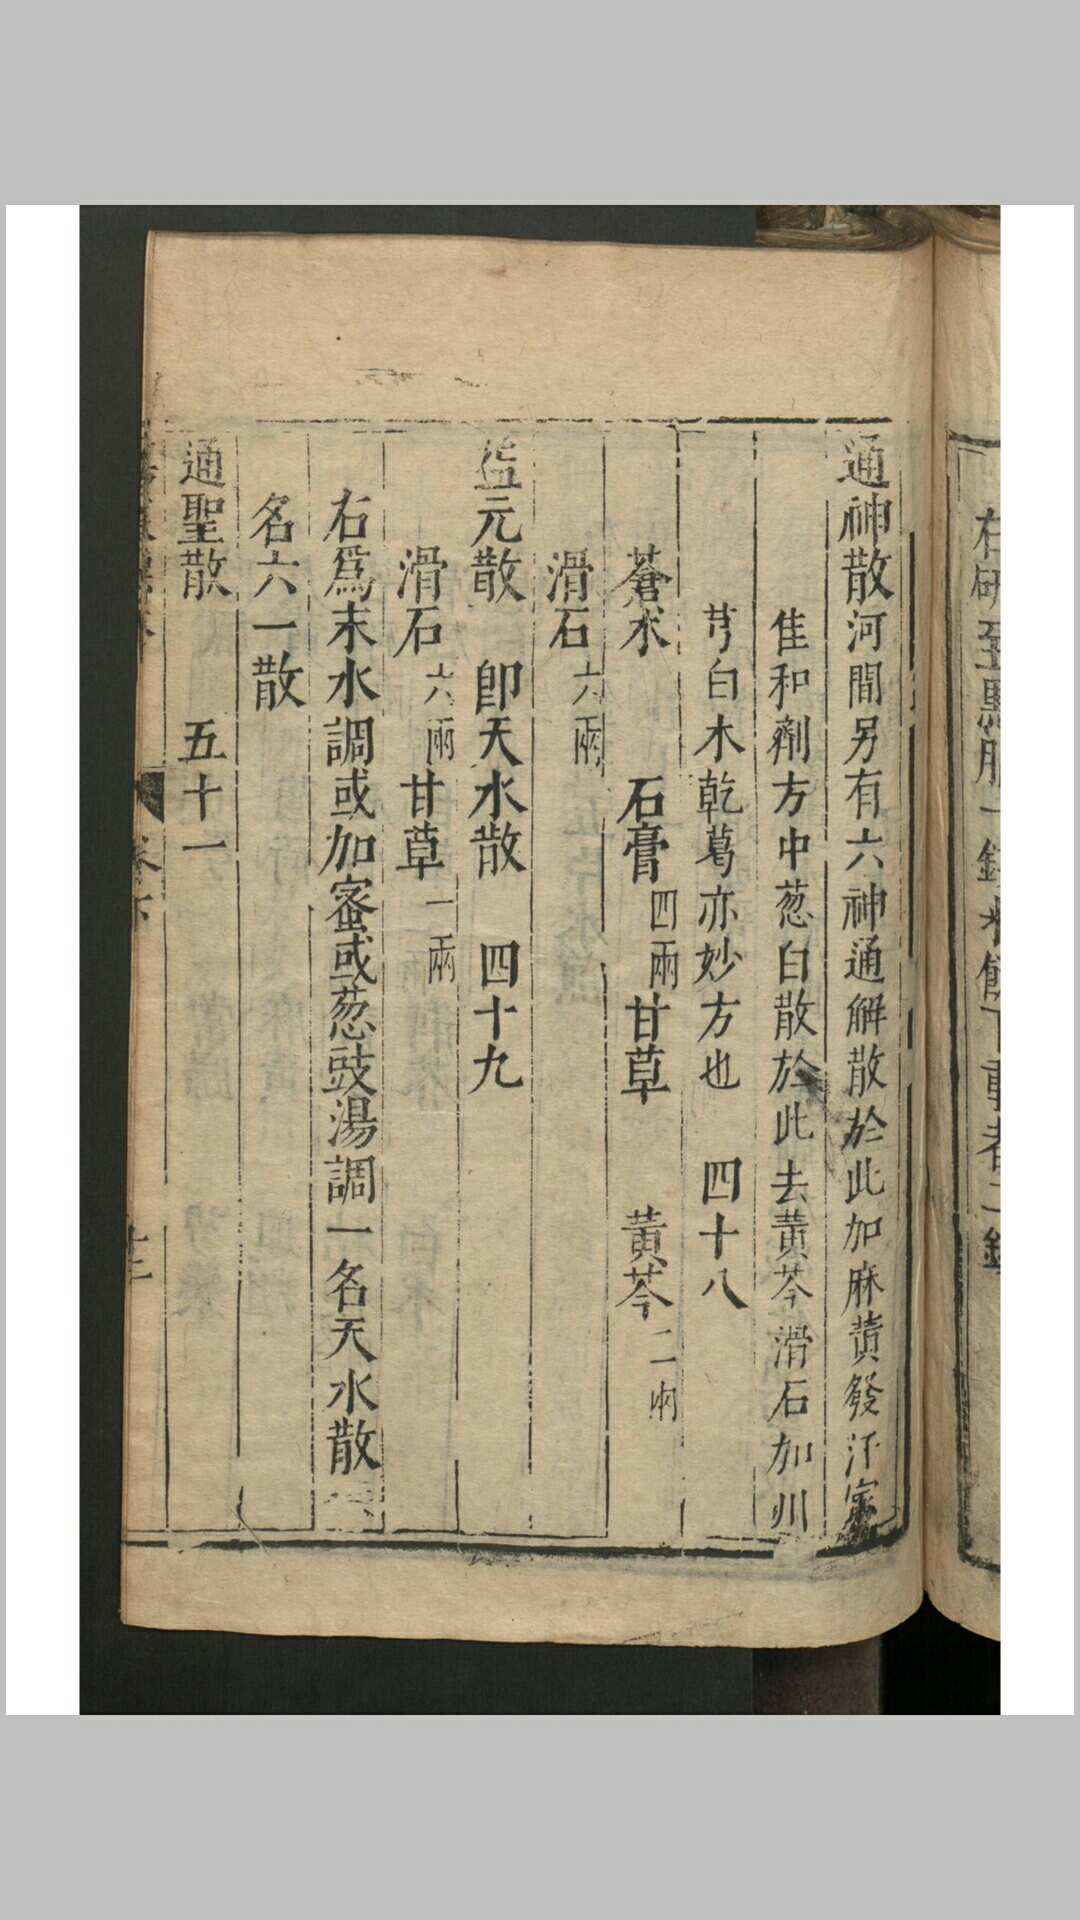 通神散河間另有六神通解散於此加麻黄發汗
隹和劑方中葱白散於此去黄芩滑石加川
芎白木乾葛亦妙方也 四十八
蒼术 石膏四兩甘草 黄芩二兩
滑石六兩
益元散 卽天水散 四十九
滑石六兩甘草一兩
右爲末水調或加蜜或葱豉湯調一名天水散
名六一散
通聖散 五十一